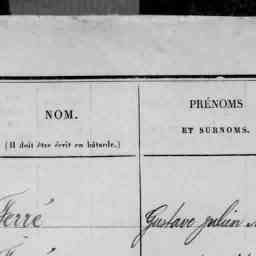 NOM.
(Il doit être écrit en bâtarde.)
PRÉNOMS
ET SURNOMS.
Ferré
Gustave julien